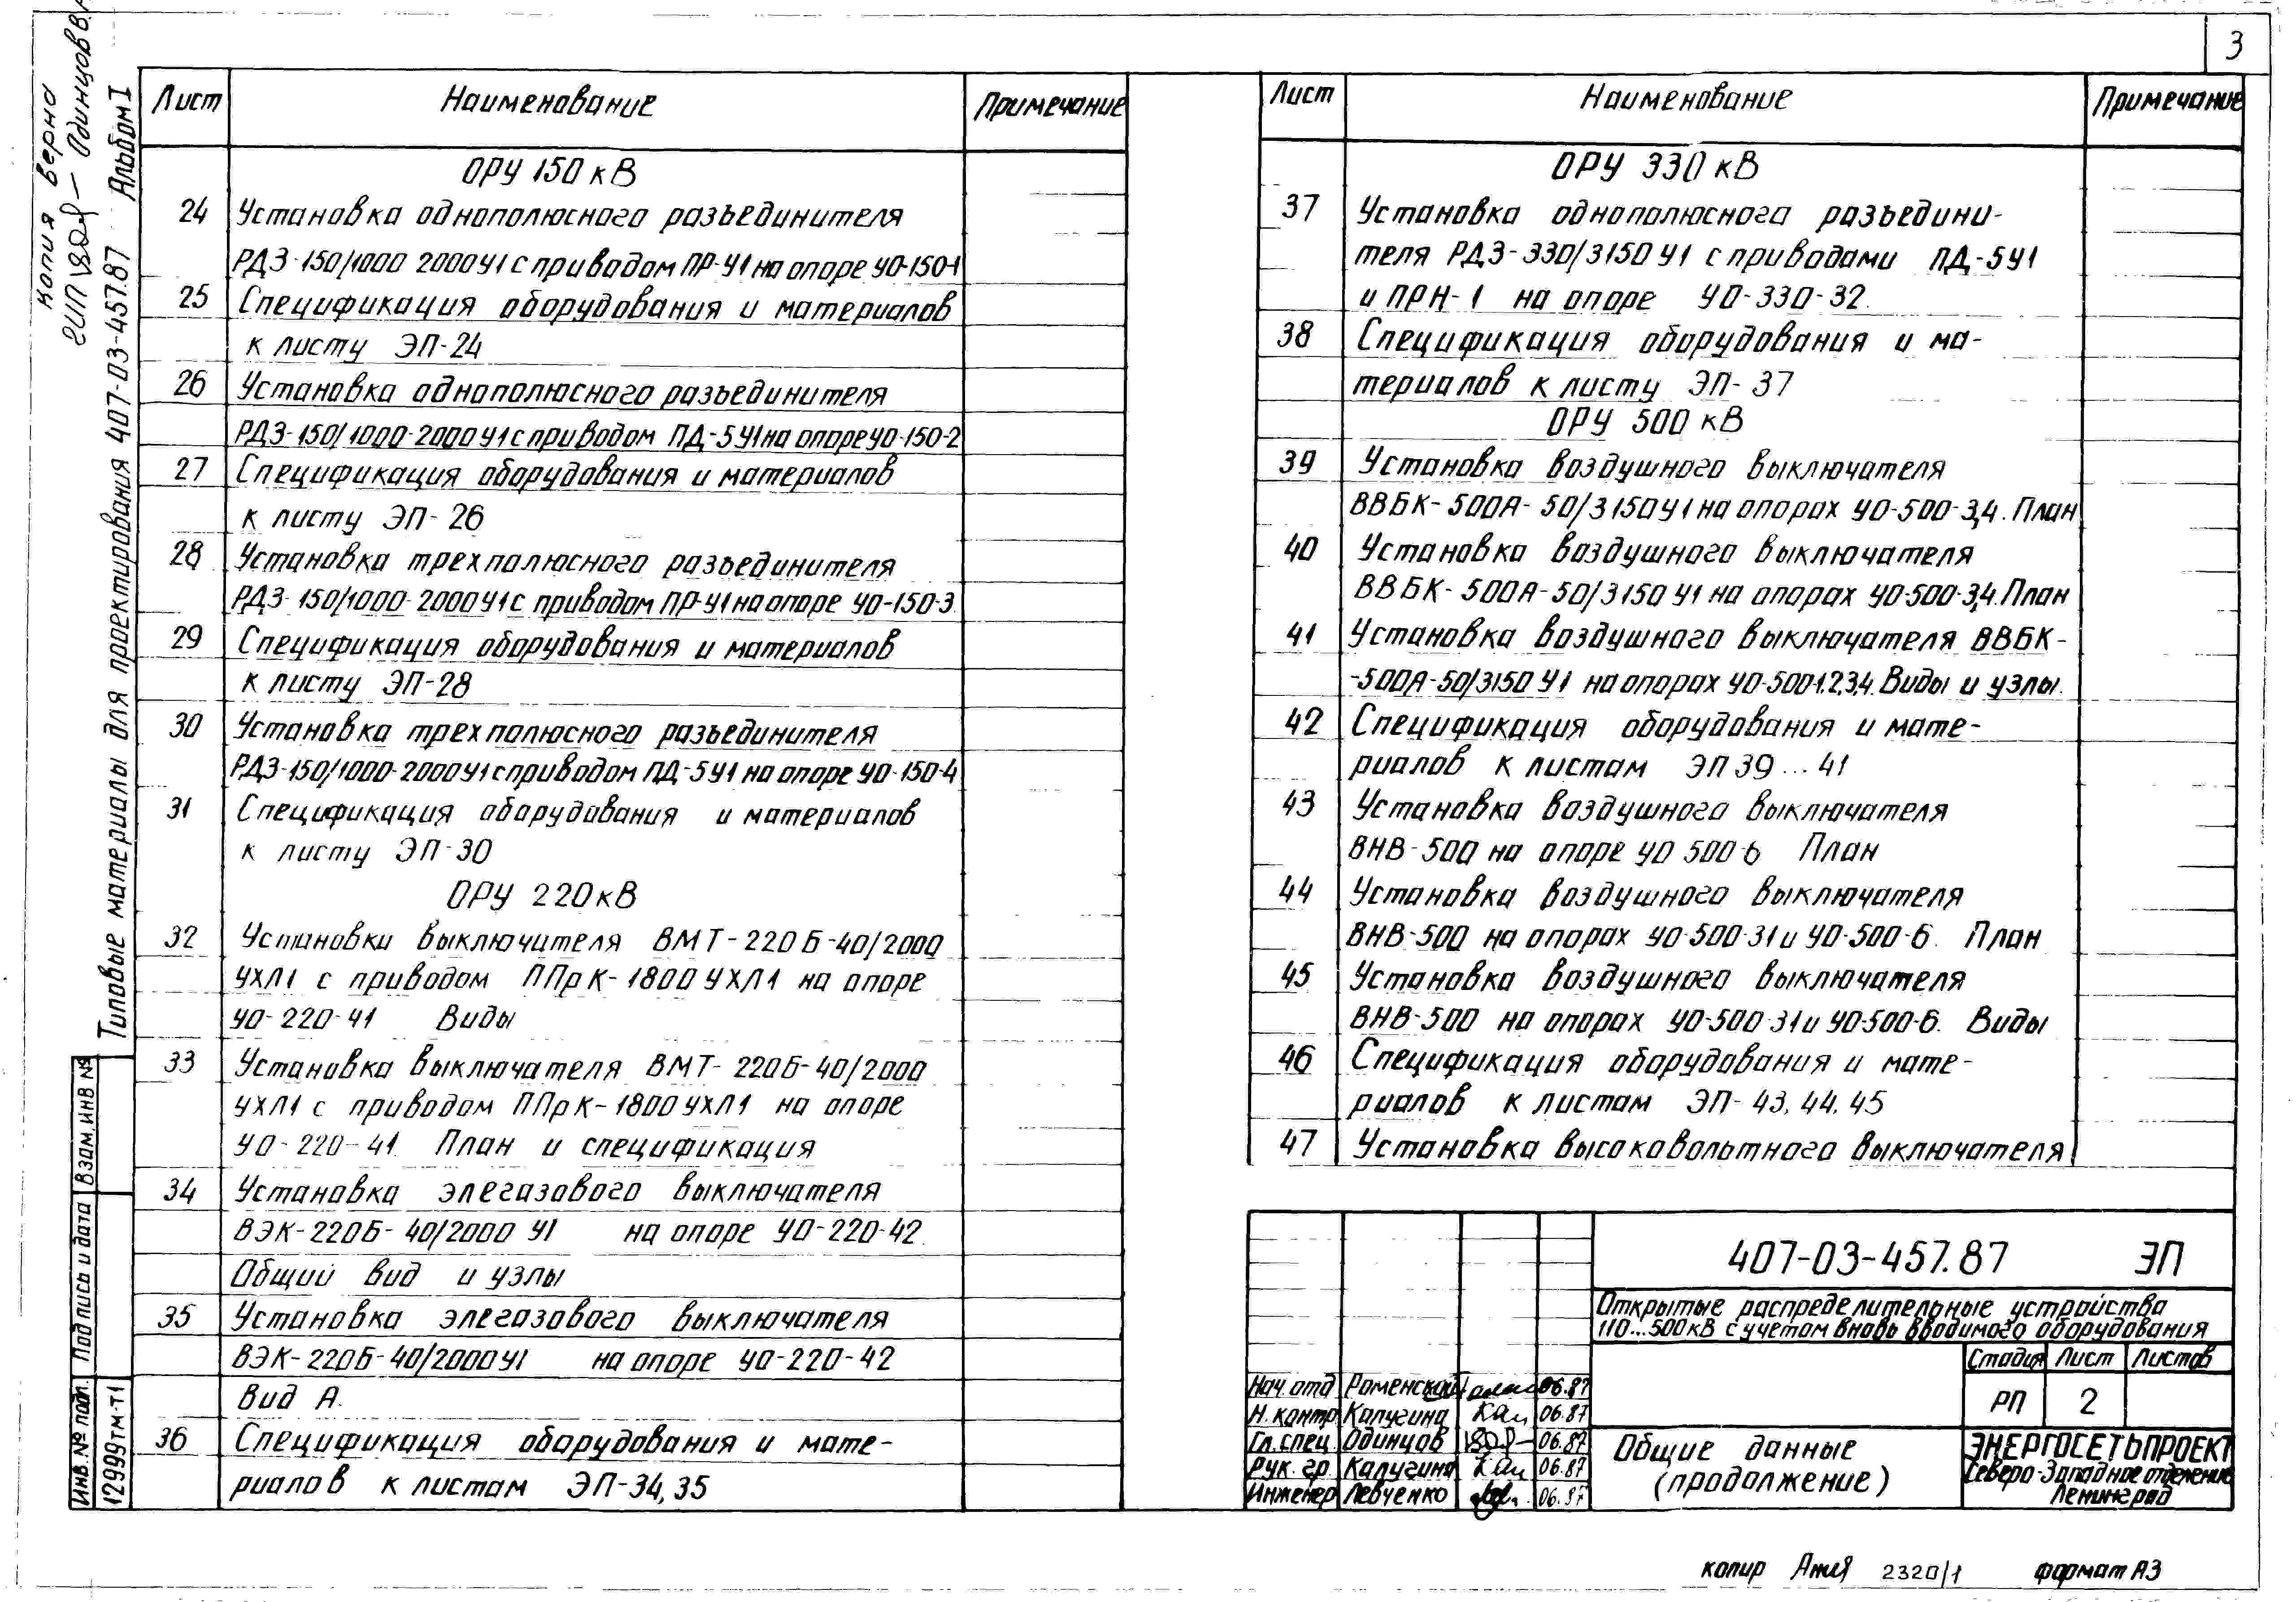 3
Копия верна
ГИП — Одинцов В.
Типовые материалы для проектирования 407-03-457.87 Альбом I
Лист Наименование Примечание
ОРУ 150 кВ
24 Установка однополюсного разъединителя
РДЗ-150/1000 2000У1 с приводом ПР-У1 на опоре УО-150-1
25 Спецификация оборудования и материалов
к листу ЭП-24
26 Установка однополюсного разъединителя
РДЗ-150/1000-2000У1 с приводом ПД-5У1 на опоре УО-150-2
27 Спецификация оборудования и материалов
к листу ЭП-26
28 Установка трехполюсного разъединителя
РДЗ-150/1000-2000У1 с приводом ПР-У1 на опоре УО-150-3
29 Спецификация оборудования и материалов
к листу ЭП-28
30 Установка трехполюсного разъединителя
РДЗ-150/1000-2000У1 с приводом ПД-5У1 на опоре УО-150-4
31 Спецификация оборудования и материалов
к листу ЭП-30
ОРУ 220 кВ
32 Установка выключателя ВМТ-220Б-40/2000
УХЛ1 с приводом ППрК-1800 УХЛ1 на опоре
УО-220-41 Виды
33 Установка выключателя ВМТ-220Б-40/2000
УХЛ1 с приводом ППрК-1800 УХЛ1 на опоре
УО-220-41. План и спецификация
34 Установка элегазового выключателя
ВЭК-220Б-40/2000 У1 на опоре УО-220-42.
Общий вид и узлы
35 Установка элегазового выключателя
ВЭК-220Б-40/2000У1 на опоре УО-220-42
Вид А.
36 Спецификация оборудования и мате-
риалов к листам ЭП-34,35
Лист Наименование Примечание
ОРУ 330 кВ
37 Установка однополюсного разъедини-
теля РДЗ-330/3150 У1 с приводами ПД-5У1
и ПРН-1 на опоре УО-330-32.
38 Спецификация оборудования и ма-
териалов к листу ЭП-37
ОРУ 500 кВ
39 Установка воздушного выключателя
ВВБК-500А-50/3150У1 на опорах УО-500-3,4. План
40 Установка воздушного выключателя
ВВБК-500А-50/3150 У1 на опорах УО-500-3,4. План
41 Установка воздушного выключателя ВВБК-
-500А-50/3150 У1 на опорах УО-500-1,2,3,4. Виды и узлы.
42 Спецификация оборудования и мате-
риалов к листам ЭП 39...41
43 Установка воздушного выключателя
ВНВ-500 на опоре УО 500-6 План
44 Установка воздушного выключателя
ВНВ-500 на опорах УО-500-31 и УО-500-6. План
45 Установка воздушного выключателя
ВНВ-500 на опорах УО-500-31 и УО-500-6. Виды
46 Спецификация оборудования и мате-
риалов к листам ЭП-43,44,45
47 Установка высоковольтного выключателя
407-03-457.87 ЭП
Открытые распределительные устройства
110...500кВ с учетом вновь вводимого оборудования
Стадия Лист Листов
РП 2
Нач. отд Роменский 06.87
Н. контр. Калугина 06.87
Гл. спец. Одинцов 06.87
Рук. гр. Калугина 06.87
Инженер Левченко 06.87
Общие данные
(продолжение)
ЭНЕРГОСЕТЬПРОЕКТ
Северо-Западное отделение
Ленинград
Взам. инв №
Подпись и дата
Инв. № подл.
12999тм-т1
копир 2320/1 формат А3